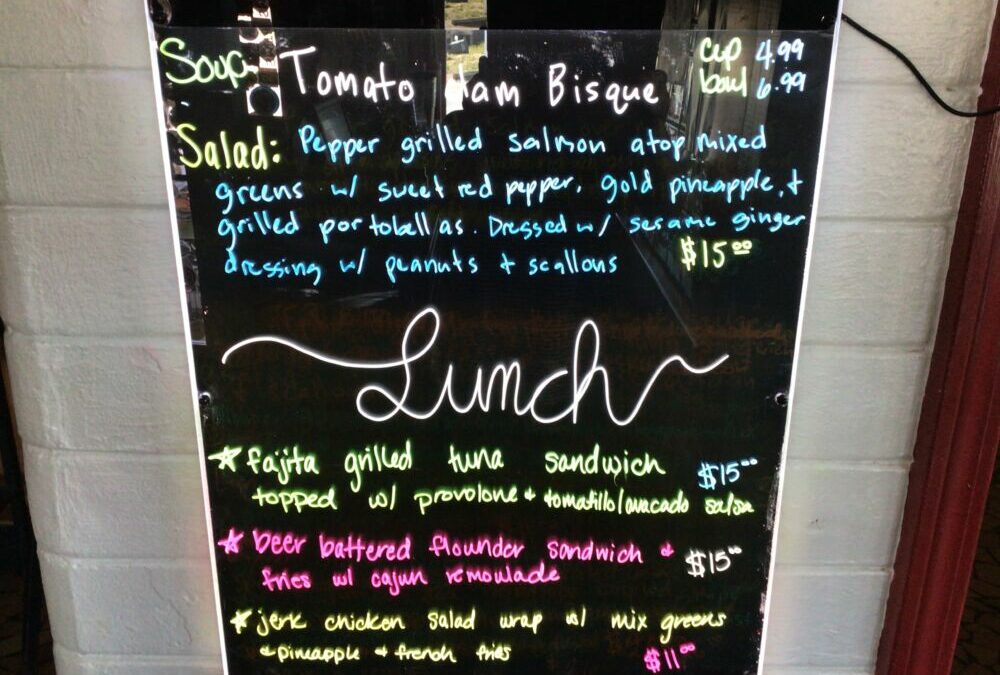 Soup- Tomato Ham Bisque cup 4.99
bowl 6.99
Salad: Pepper grilled salmon atop mixed
greens w/ sweet red pepper, gold pineapple, +
grilled portobellas. Dressed w/ sesame ginger
dressing w/ peanuts + scallons $15.00
Lunch
☆ fajita grilled tuna sandwich $15.00
topped w/ provolone + tomatillo/avacado salsa
☆ beer battered flounder sandwich + $15.00
fries w/ cajun remoulade
☆ jerk chicken salad wrap w/ mix greens
+ pineapple + french fries $11.00